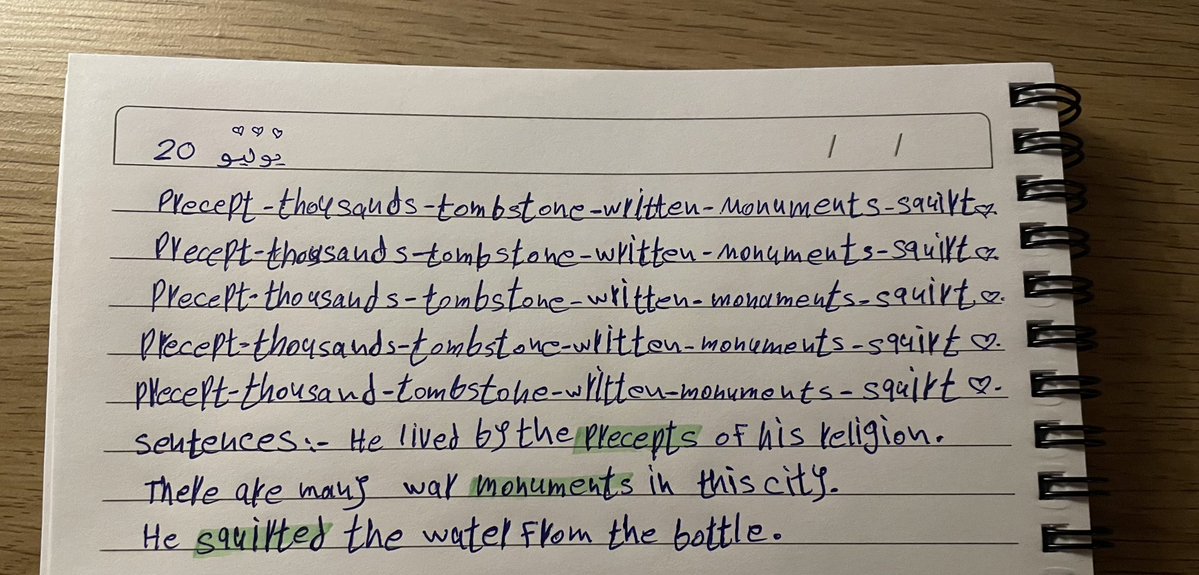 20 يوليو / /
Precept-thousands-tombstone-written-monuments-squirt♡.
Precept-thousands-tombstone-written-monuments-squirt♡
Precept-thousands-tombstone-written-monuments-squirt♡.
Precept-thousands-tombstone-written-monuments-squirt♡.
Precept-thousand-tombstone-written-monuments-squirt♡.
sentences:- He lived by the precepts of his religion.
There are many war monuments in this city.
He squirted the water from the bottle.